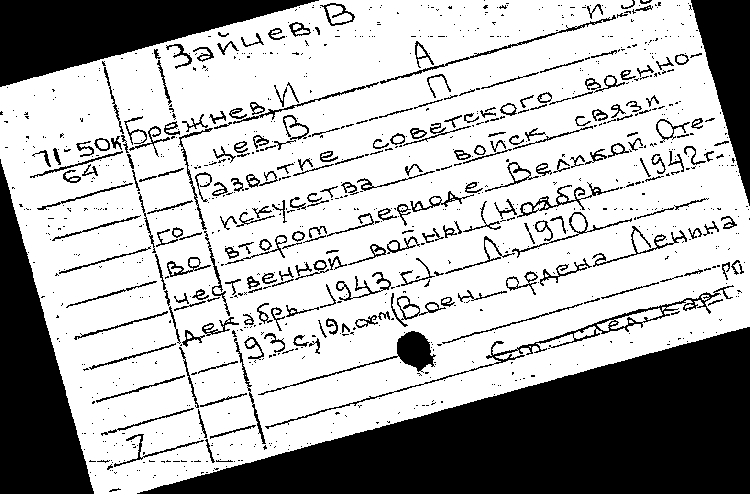 Зайцев, В
Брежнев, И. А
71-50к
64
цев, В. П
Развитие советского военно-
го искусства и войск связи
во втором периоде Великой Оте-
чественной войны. (Ноябрь 1942г.-
декабрь 1943 г.). Л., 1970.
93 с., 19л.схем (Воен. ордена Ленина
См след. карт.
РП
7